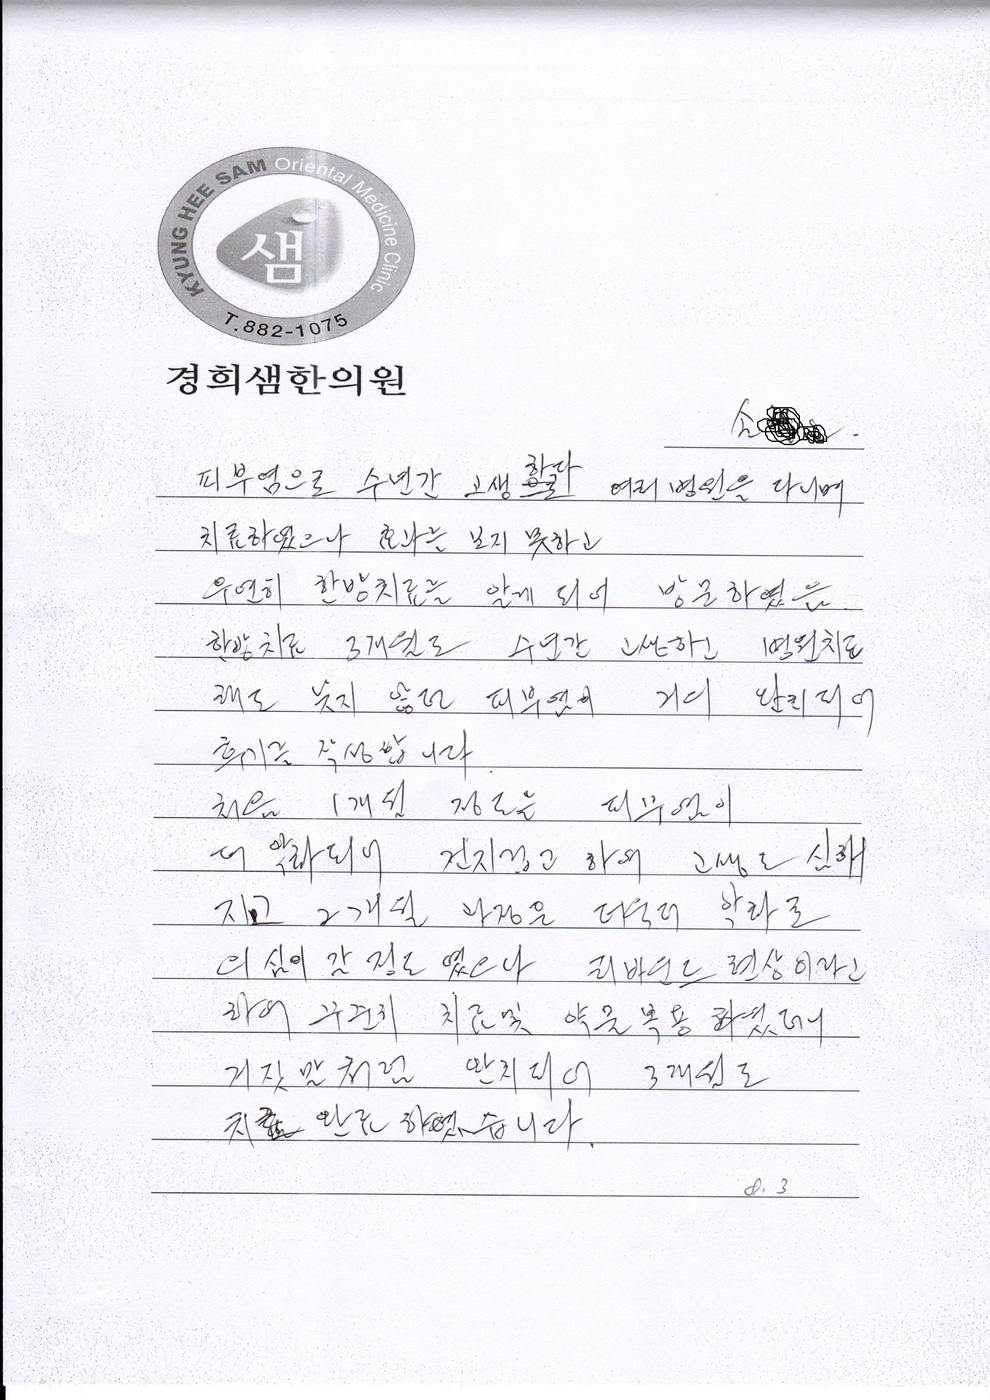 KYUNG HEE SAM Oriental Medicine Clinic
샘
T.882-1075
경희샘한의원
손
피부염으로 수년간 고생하다 여러 병원을 다니며
치료하였으나 효과를 보지 못하고
우연히 한방치료를 알게 되어 방문하였음.
한방치료 3개월로 수년간 고생하고 병원치료
해도 낫지 않던 피부염이 거의 완치되어
후기를 작성합니다.
처음 1개월 정도는 피부염이
더 악화되어 간지럽고 하여 고생도 심해
지고 2개월 과정은 더욱더 악화로
의심이 갈 정도였으나 리바운드 현상이라고
하여 꾸준히 치료및 약물복용 하였더니
거짓말처럼 완치되어 3개월로
치료 완료 하였습니다.
8. 3